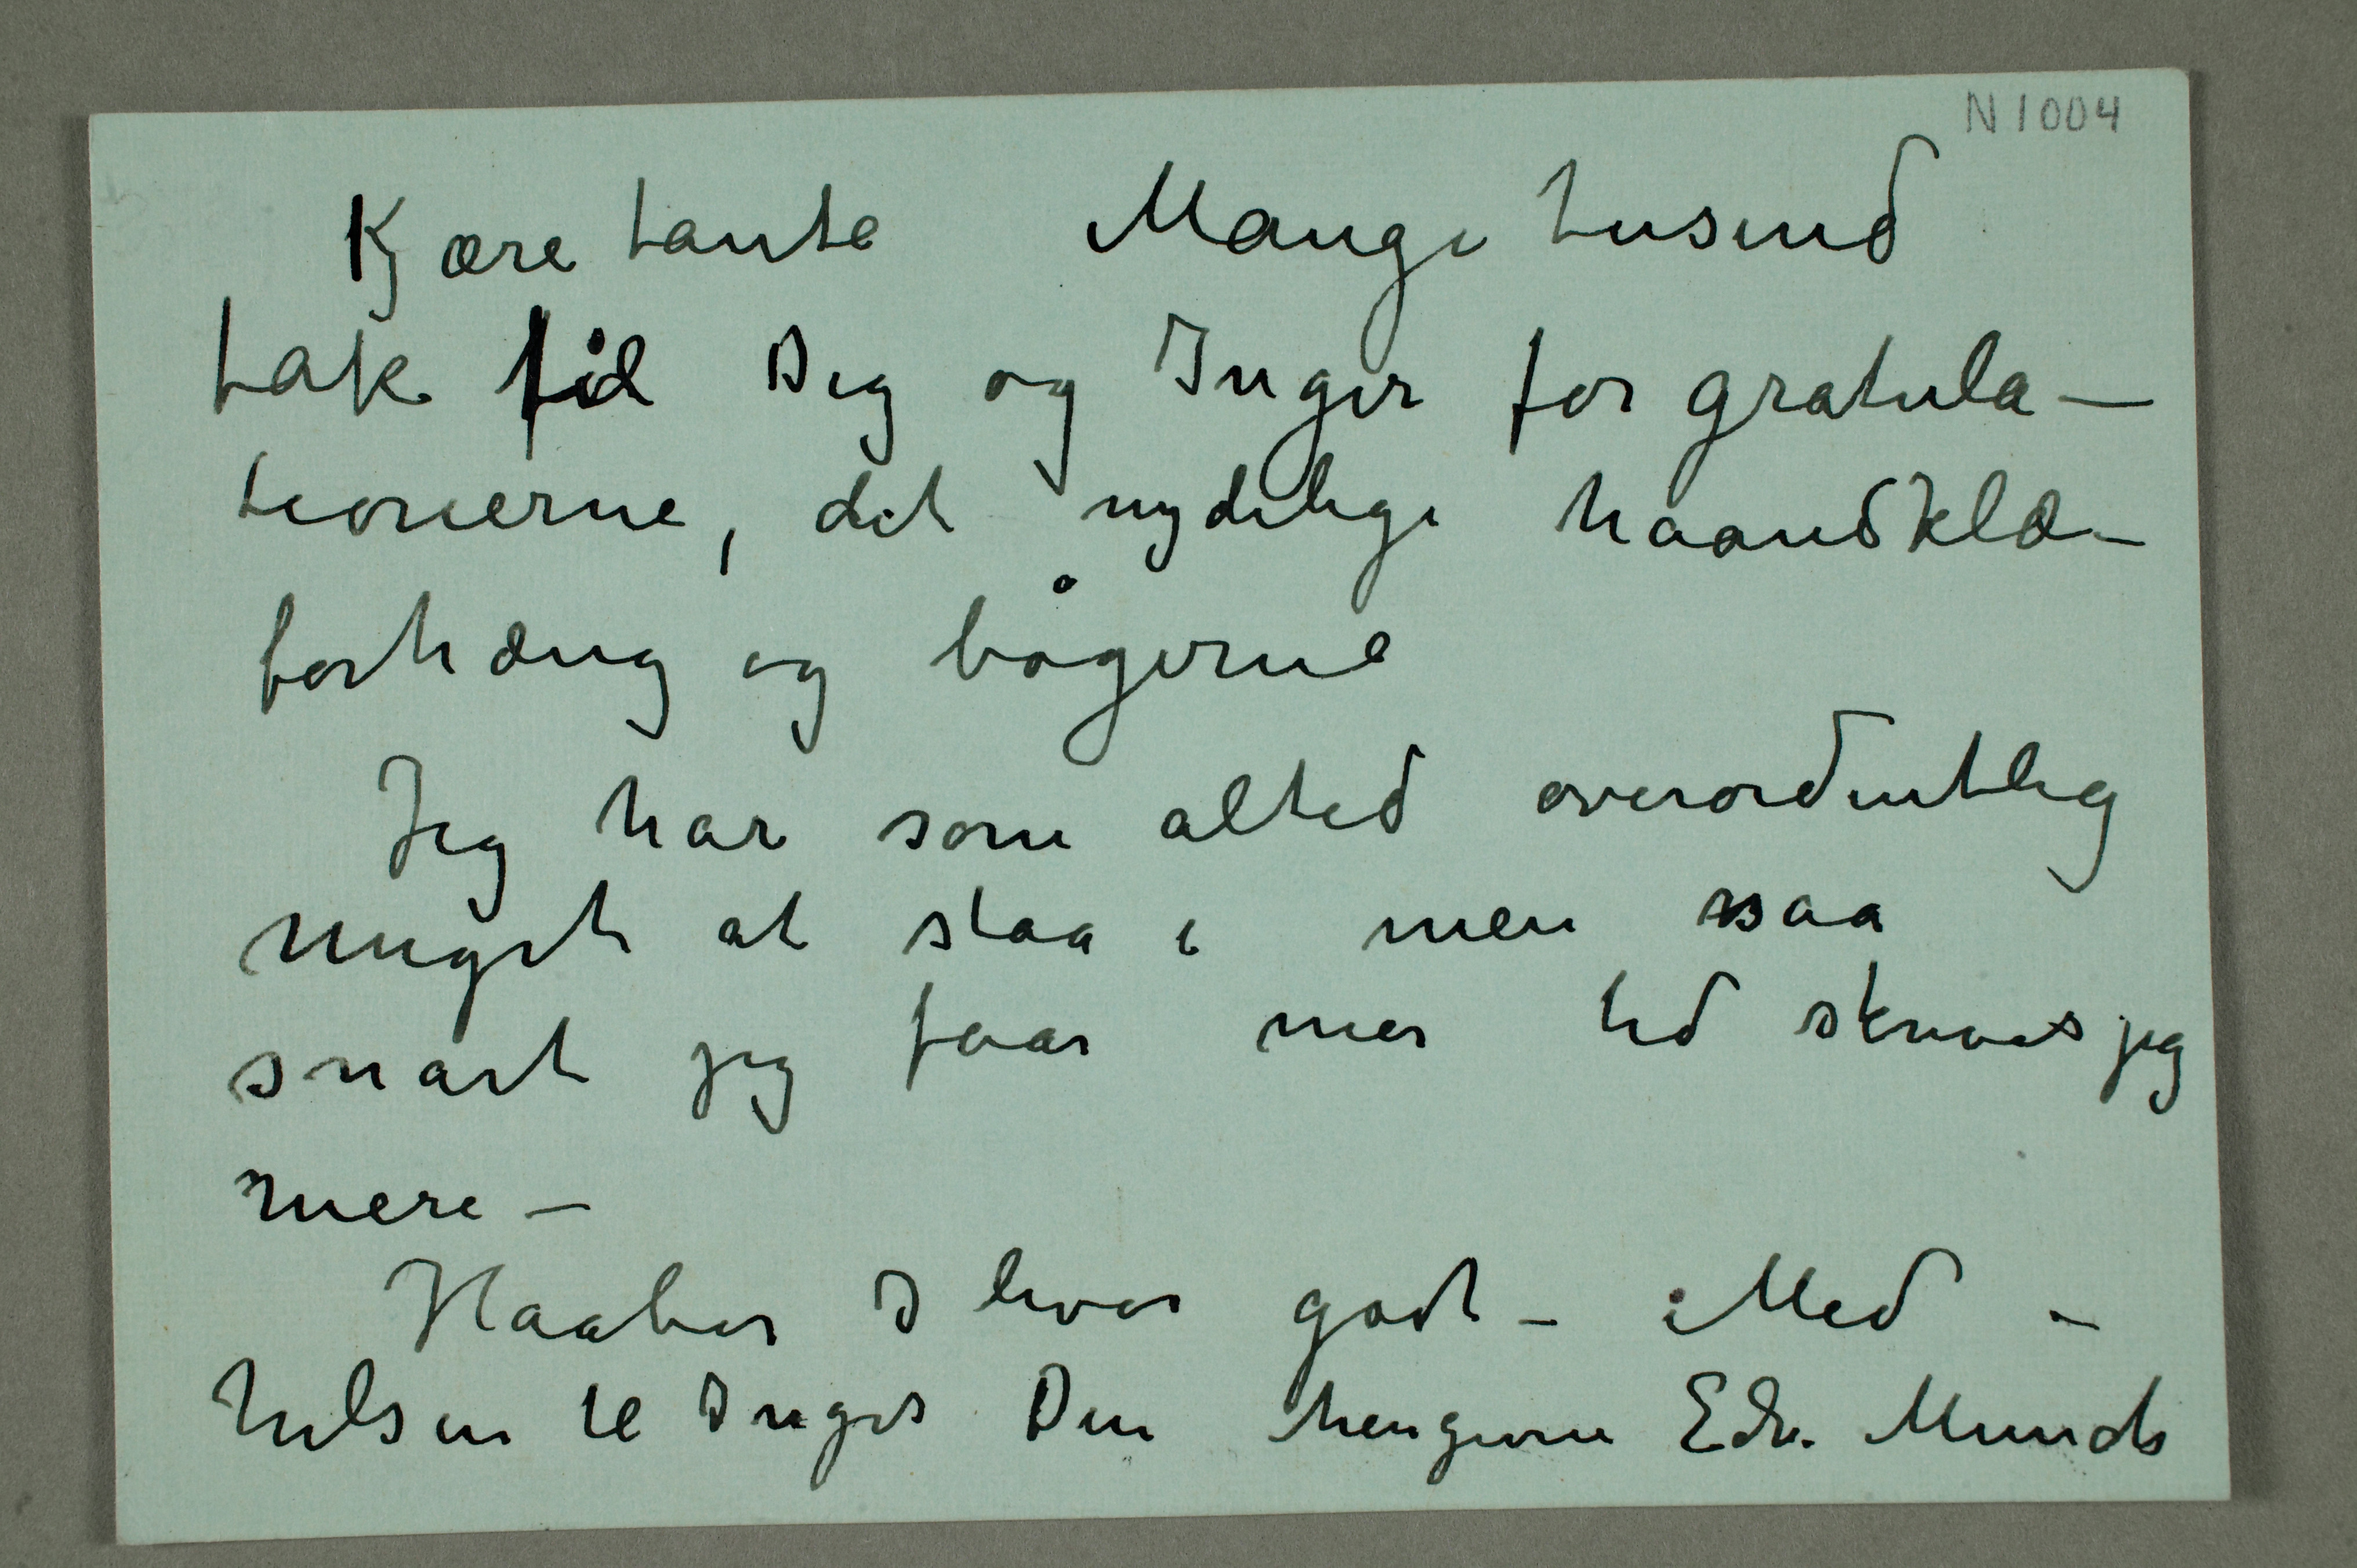 N 1004
Kjære tante Mange tusind
tak til Dig og Inger for gratula–
tionerne, det nydelige haandklæ–
forhæng og bøgerne
Jeg har som altid overordentlig
meget at staa i men saa
snart jeg faar mer tid skriver jeg
mere –
Haaber I lever godt – Med –
hilsen til Inger Din hengivne Edv. Munch